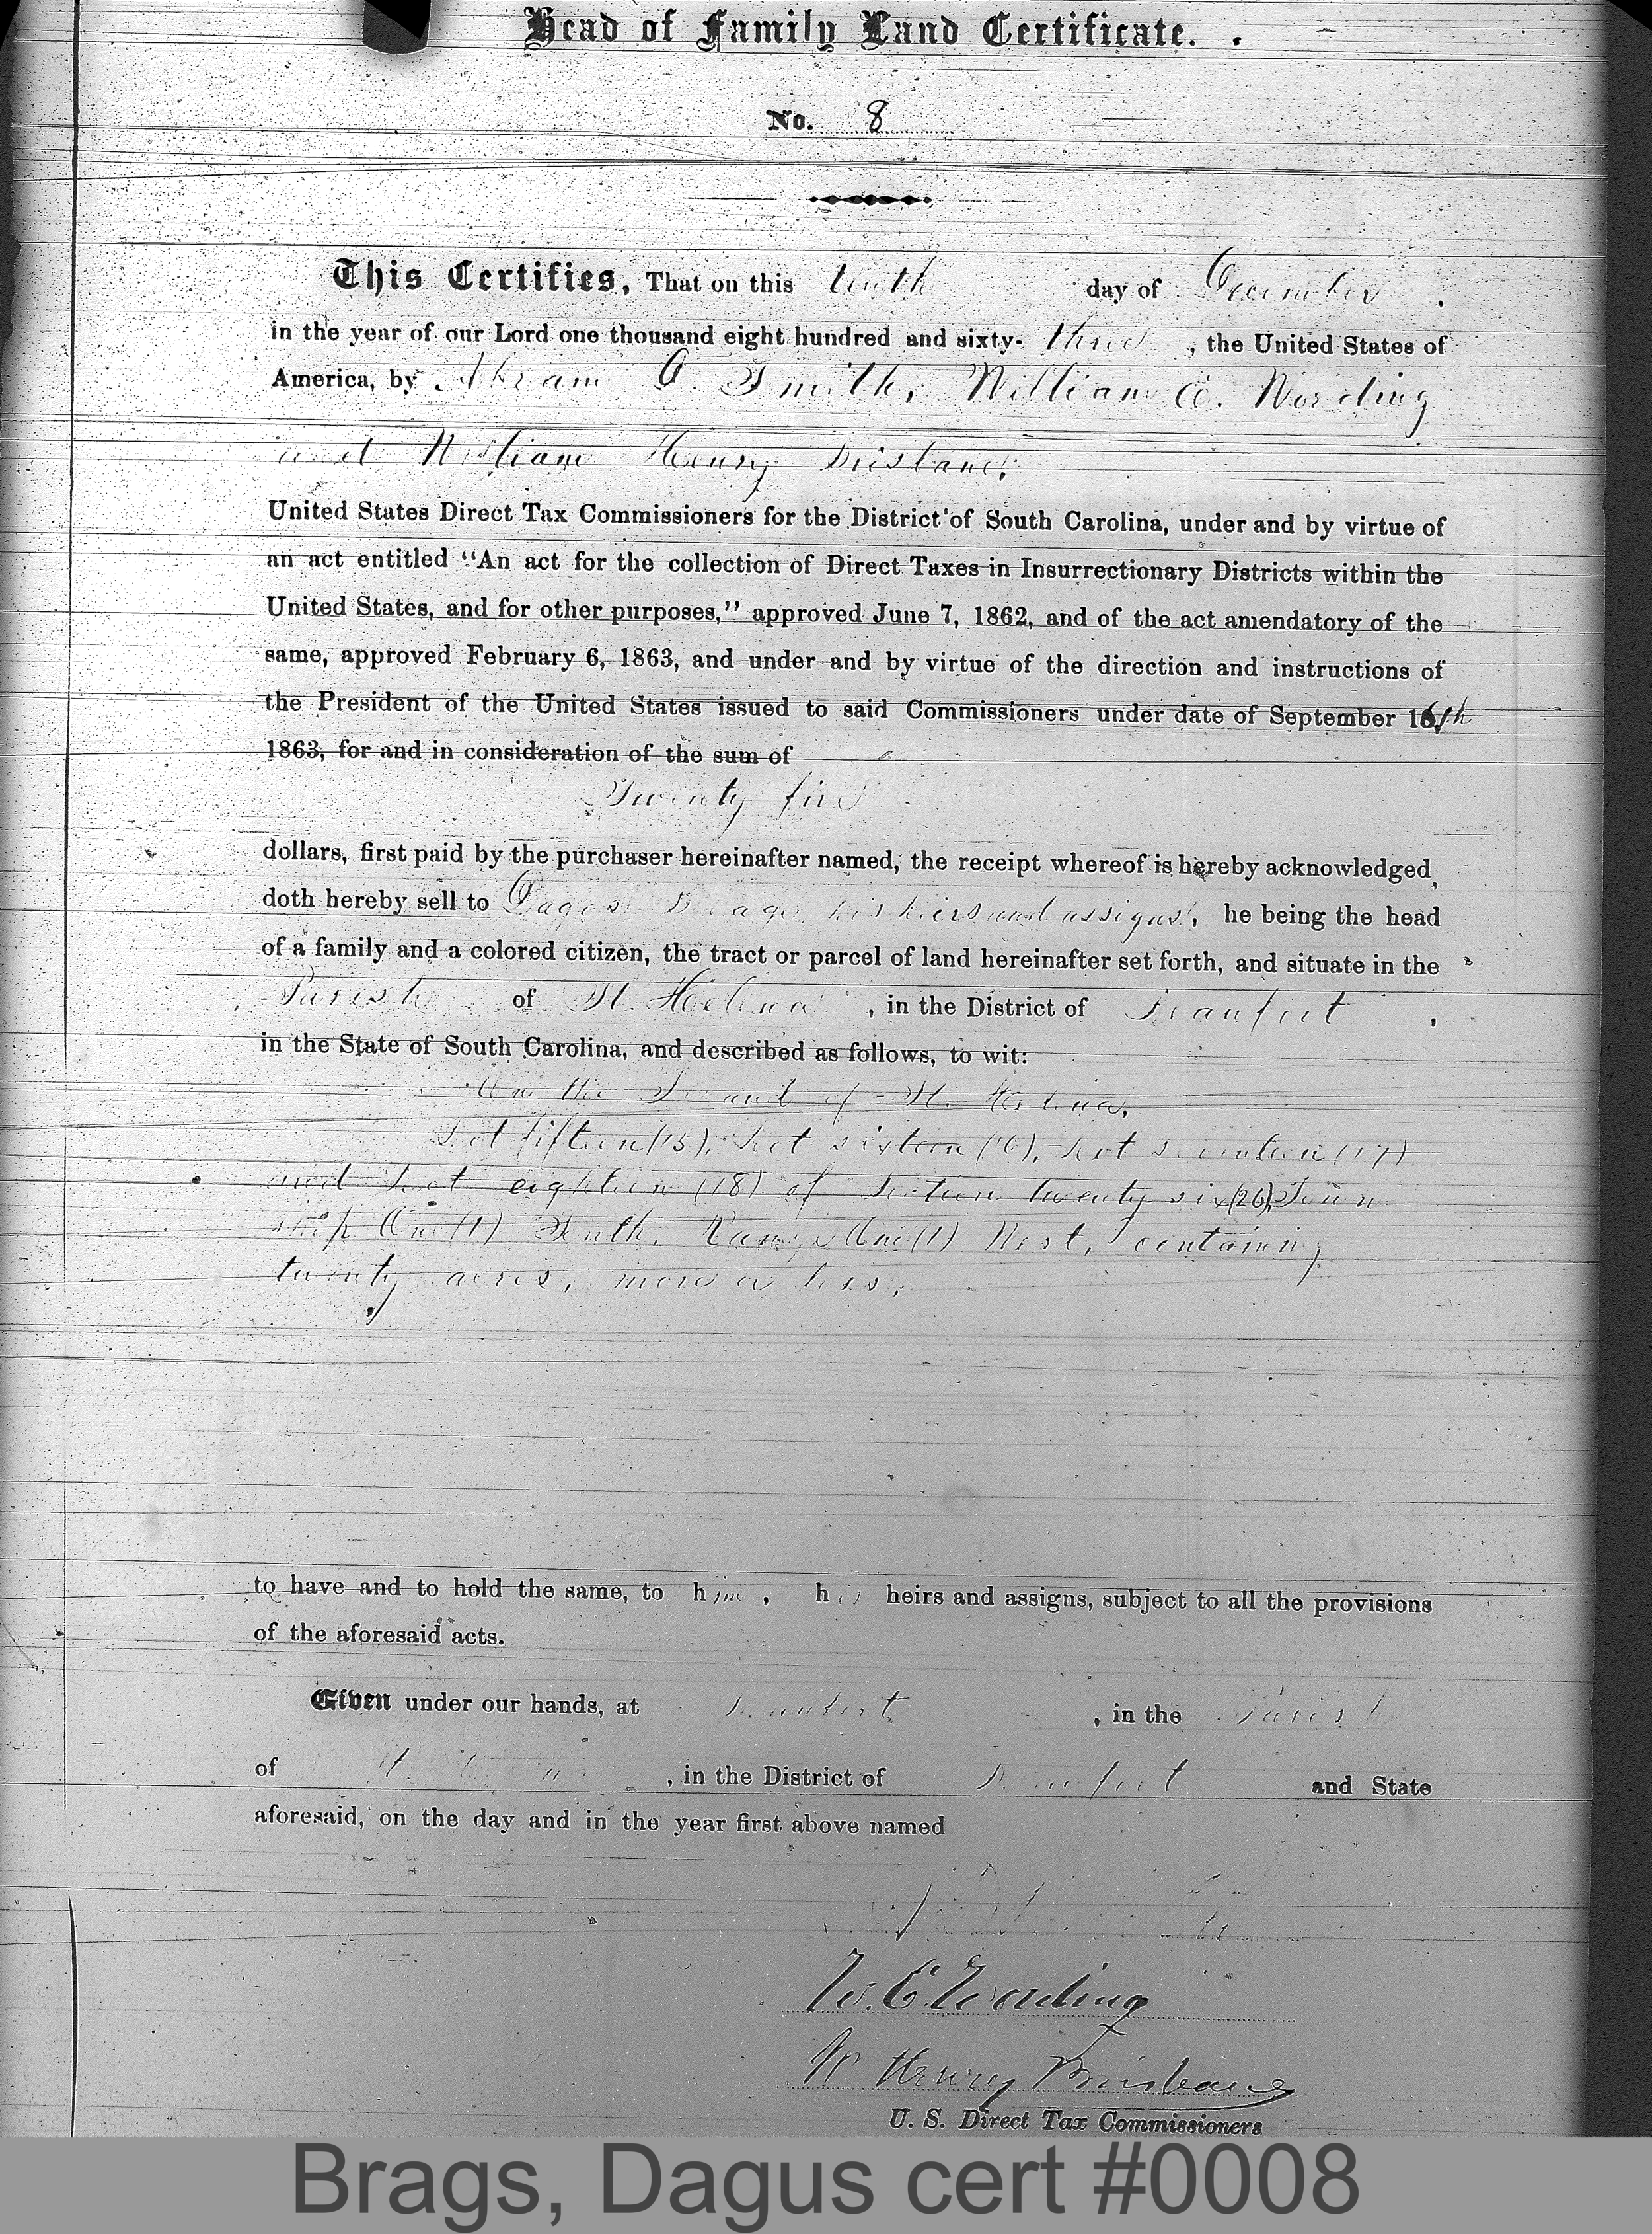 Head of Family Land Certificate.
No. 8
This Certifies, That on this tenth day of December
in the year of our Lord one thousand eight hundred and sixty- three, the United States of
America, by Abram D. Smith, William E. Wording
and William Henry Brisbane,
United States Direct Tax Commissioners for the District of South Carolina, under and by virtue of
an act entitled "An act for the collection of Direct Taxes in Insurrectionary Districts within the
United States, and for other purposes," approved June 7, 1862, and of the act amendatory of the
same, approved February 6, 1863, and under and by virtue of the direction and instructions of
the President of the United States issued to said Commissioners under date of September 16th
1863, for and in consideration of the sum of
Twenty five
dollars, first paid by the purchaser hereinafter named, the receipt whereof is hereby acknowledged,
doth hereby sell to Dagus Brags, his heirs and assigns, he being the head
of a family and a colored citizen, the tract or parcel of land hereinafter set forth, and situate in the
Parish of St. Helena, in the District of Beaufort,
in the State of South Carolina, and described as follows, to wit:
On the Island of St. Helena,
Lot fifteen (15), Lot sixteen (16), Lot seventeen (17)
and Lot eighteen (18) of Section twenty six (26), Town
ship One (1) South, Range One (1) West, containing
twenty acres, more or less,
to have and to hold the same, to him, his heirs and assigns, subject to all the provisions
of the aforesaid acts.
Given under our hands, at Beaufort, in the Parish
of St. Helena, in the District of Beaufort and State
aforesaid, on the day and in the year first above named
W. E. Wording
Wm Henry Brisbane
U. S. Direct Tax Commissioners
Brags, Dagus cert #0008